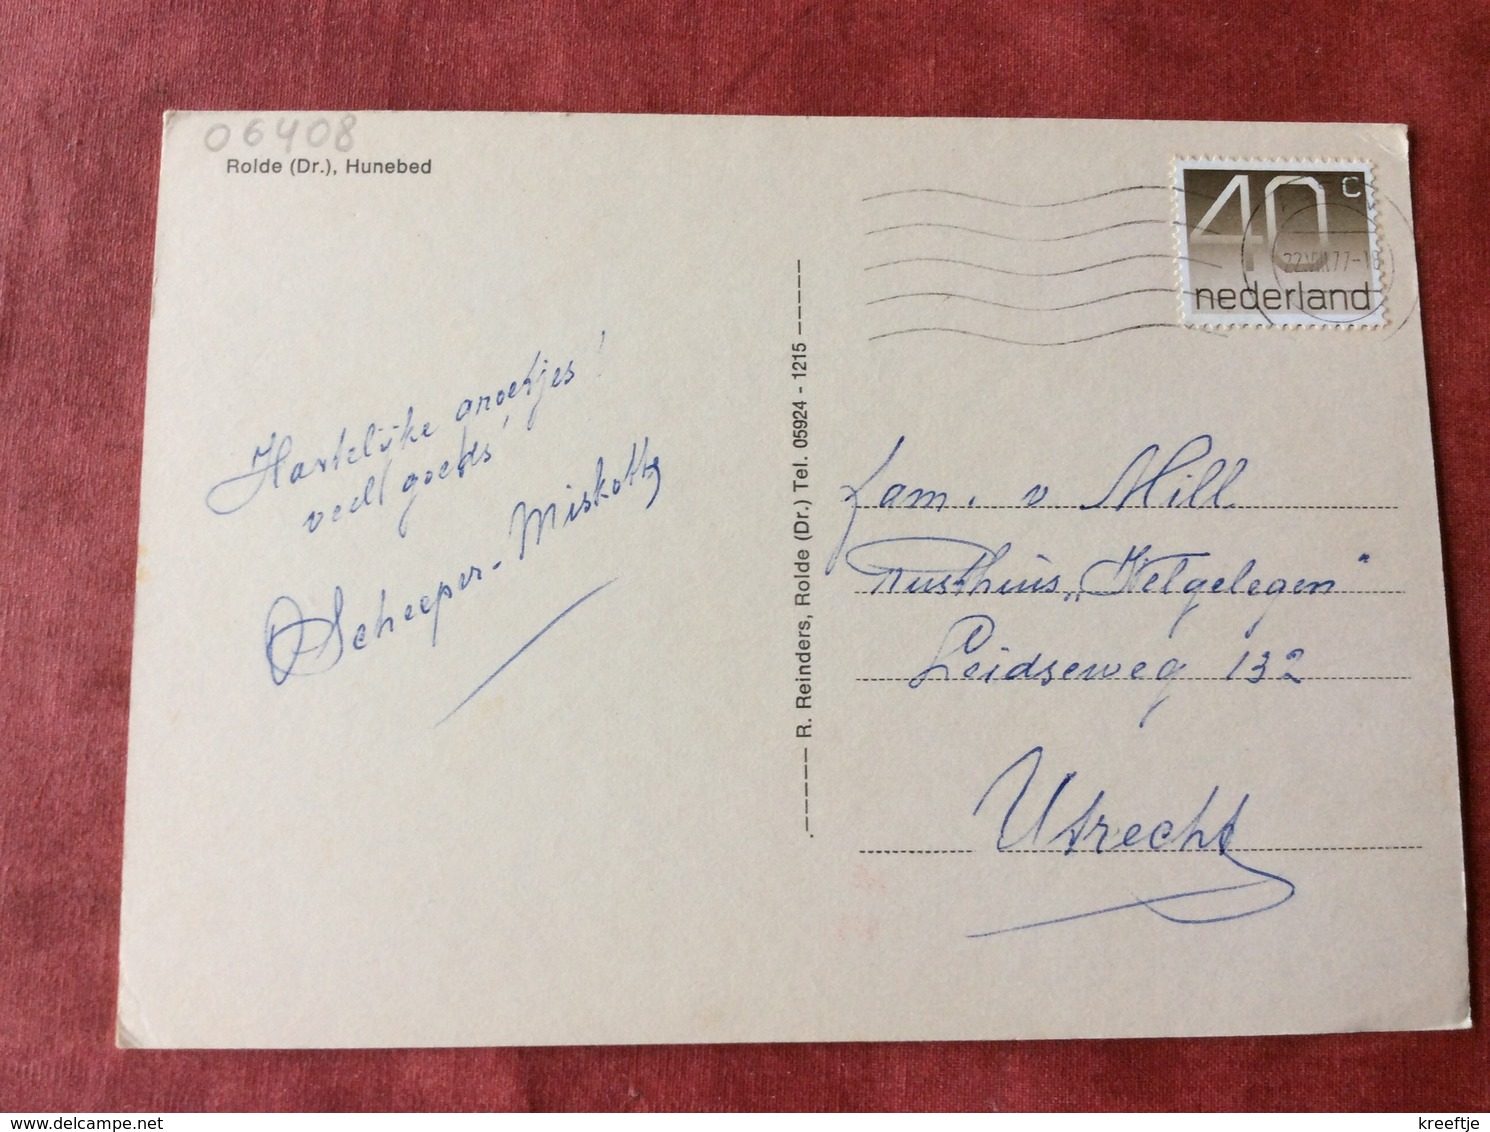 06408
Rolde (Dr.), Hunebed
40 c
nederland
22.VIII.77-18
Hartelijke groetjes!
veel goeds!
Scheeper-Miskotte
R. Reinders, Rolde (Dr.) Tel. 05924 - 1215
fam. v. Mill
Rusthuis „Welgelegen"
Leidseweg 132
Utrecht
kreeftje